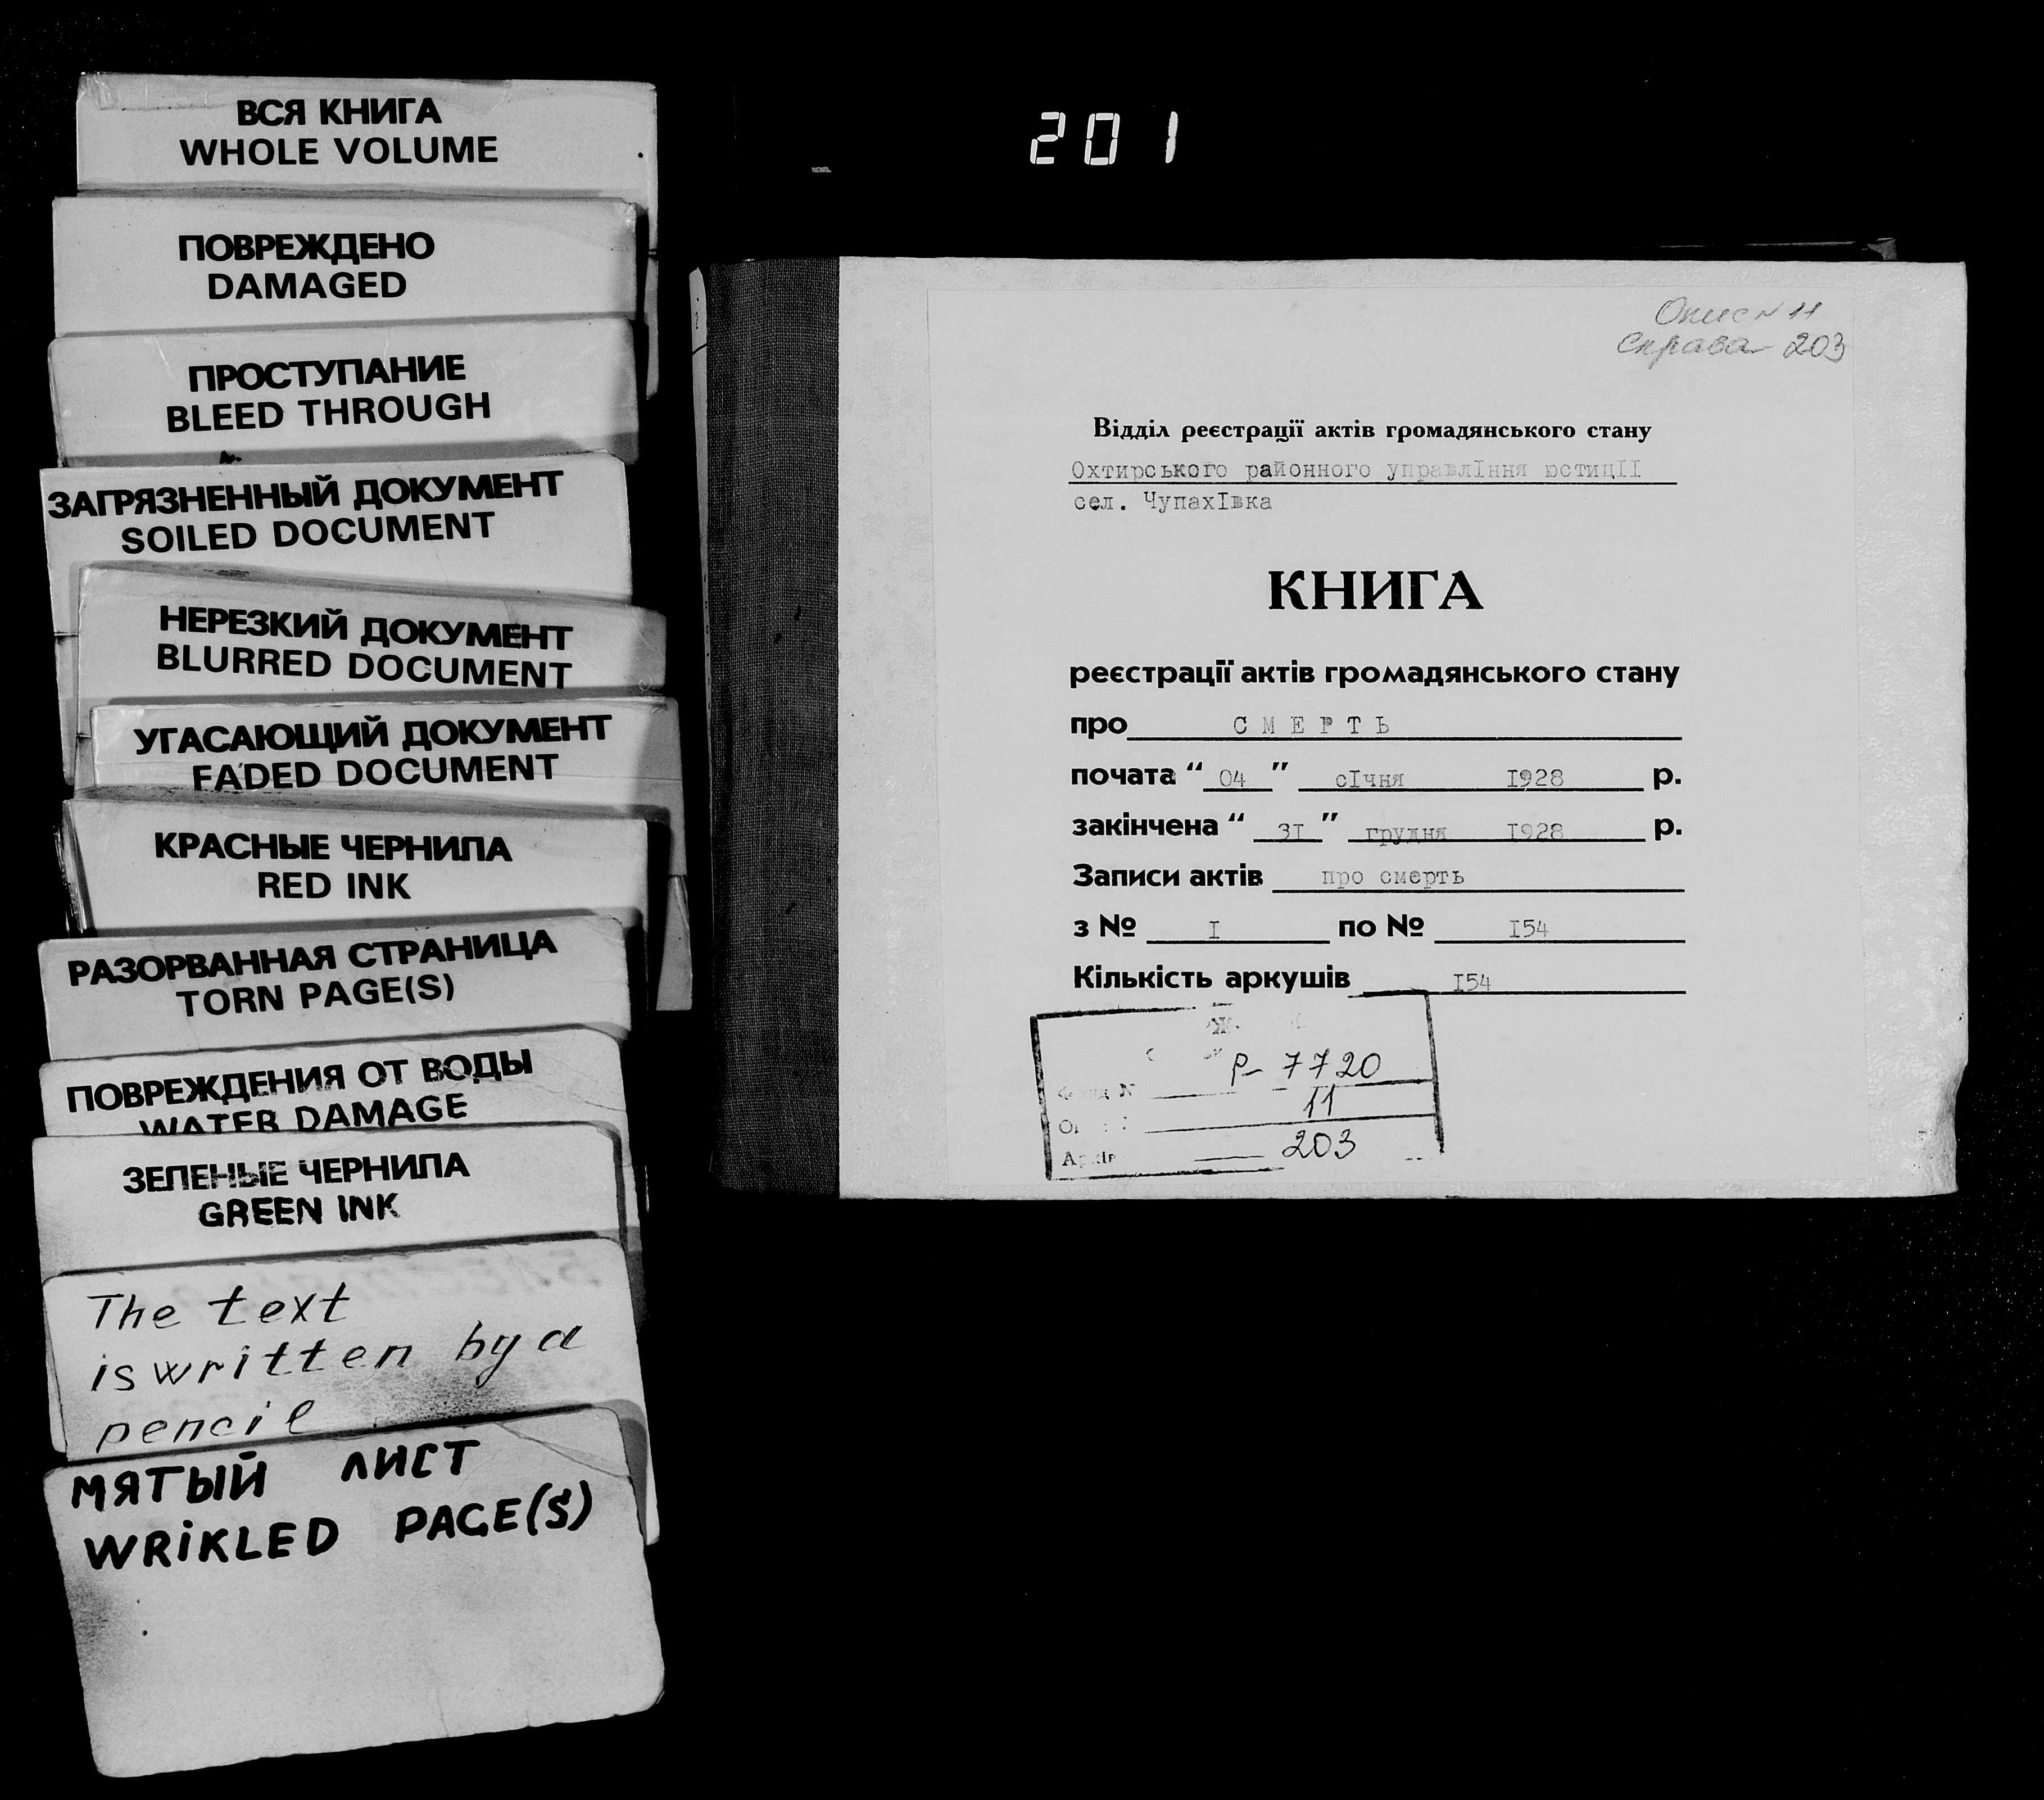 ВСЯ КНИГА
WHOLE VOLUME
ПОВРЕЖДЕНО
DAMAGED
ПРОСТУПАНИЕ
BLEED THROUGH
ЗАГРЯЗНЕННЫЙ ДОКУМЕНТ
SOILED DOCUMENT
НЕРЕЗКИЙ ДОКУМЕНТ
BLURRED DOCUMENT
УГАСАЮЩИЙ ДОКУМЕНТ
FADED DOCUMENT
КРАСНЫЕ ЧЕРНИЛА
RED INK
РАЗОРВАННАЯ СТРАНИЦА
TORN PAGE(S)
ПОВРЕЖДЕНИЯ ОТ ВОДЫ
WATER DAMAGE
ЗЕЛЕНЫЕ ЧЕРНИЛА
GREEN INK
The text
is written by a
pencil
МЯТЫЙ ЛИСТ
WRiKLED PAGE(S)
201
Опис N 11
Справа 203
Відділ реєстрації актів громадянського стану
Охтирського районного управлIння юстицII
сел. ЧупахIвка
КНИГА
реєстрації актів громадянського стану
про СМЕРТЬ
почата “ 04 ” сIчня I928 р.
закінчена “ 3I ” грудня I928 р.
Записи актів про смерть
з № I по № I54
Кількість аркушів I54
Р-7720
11
203